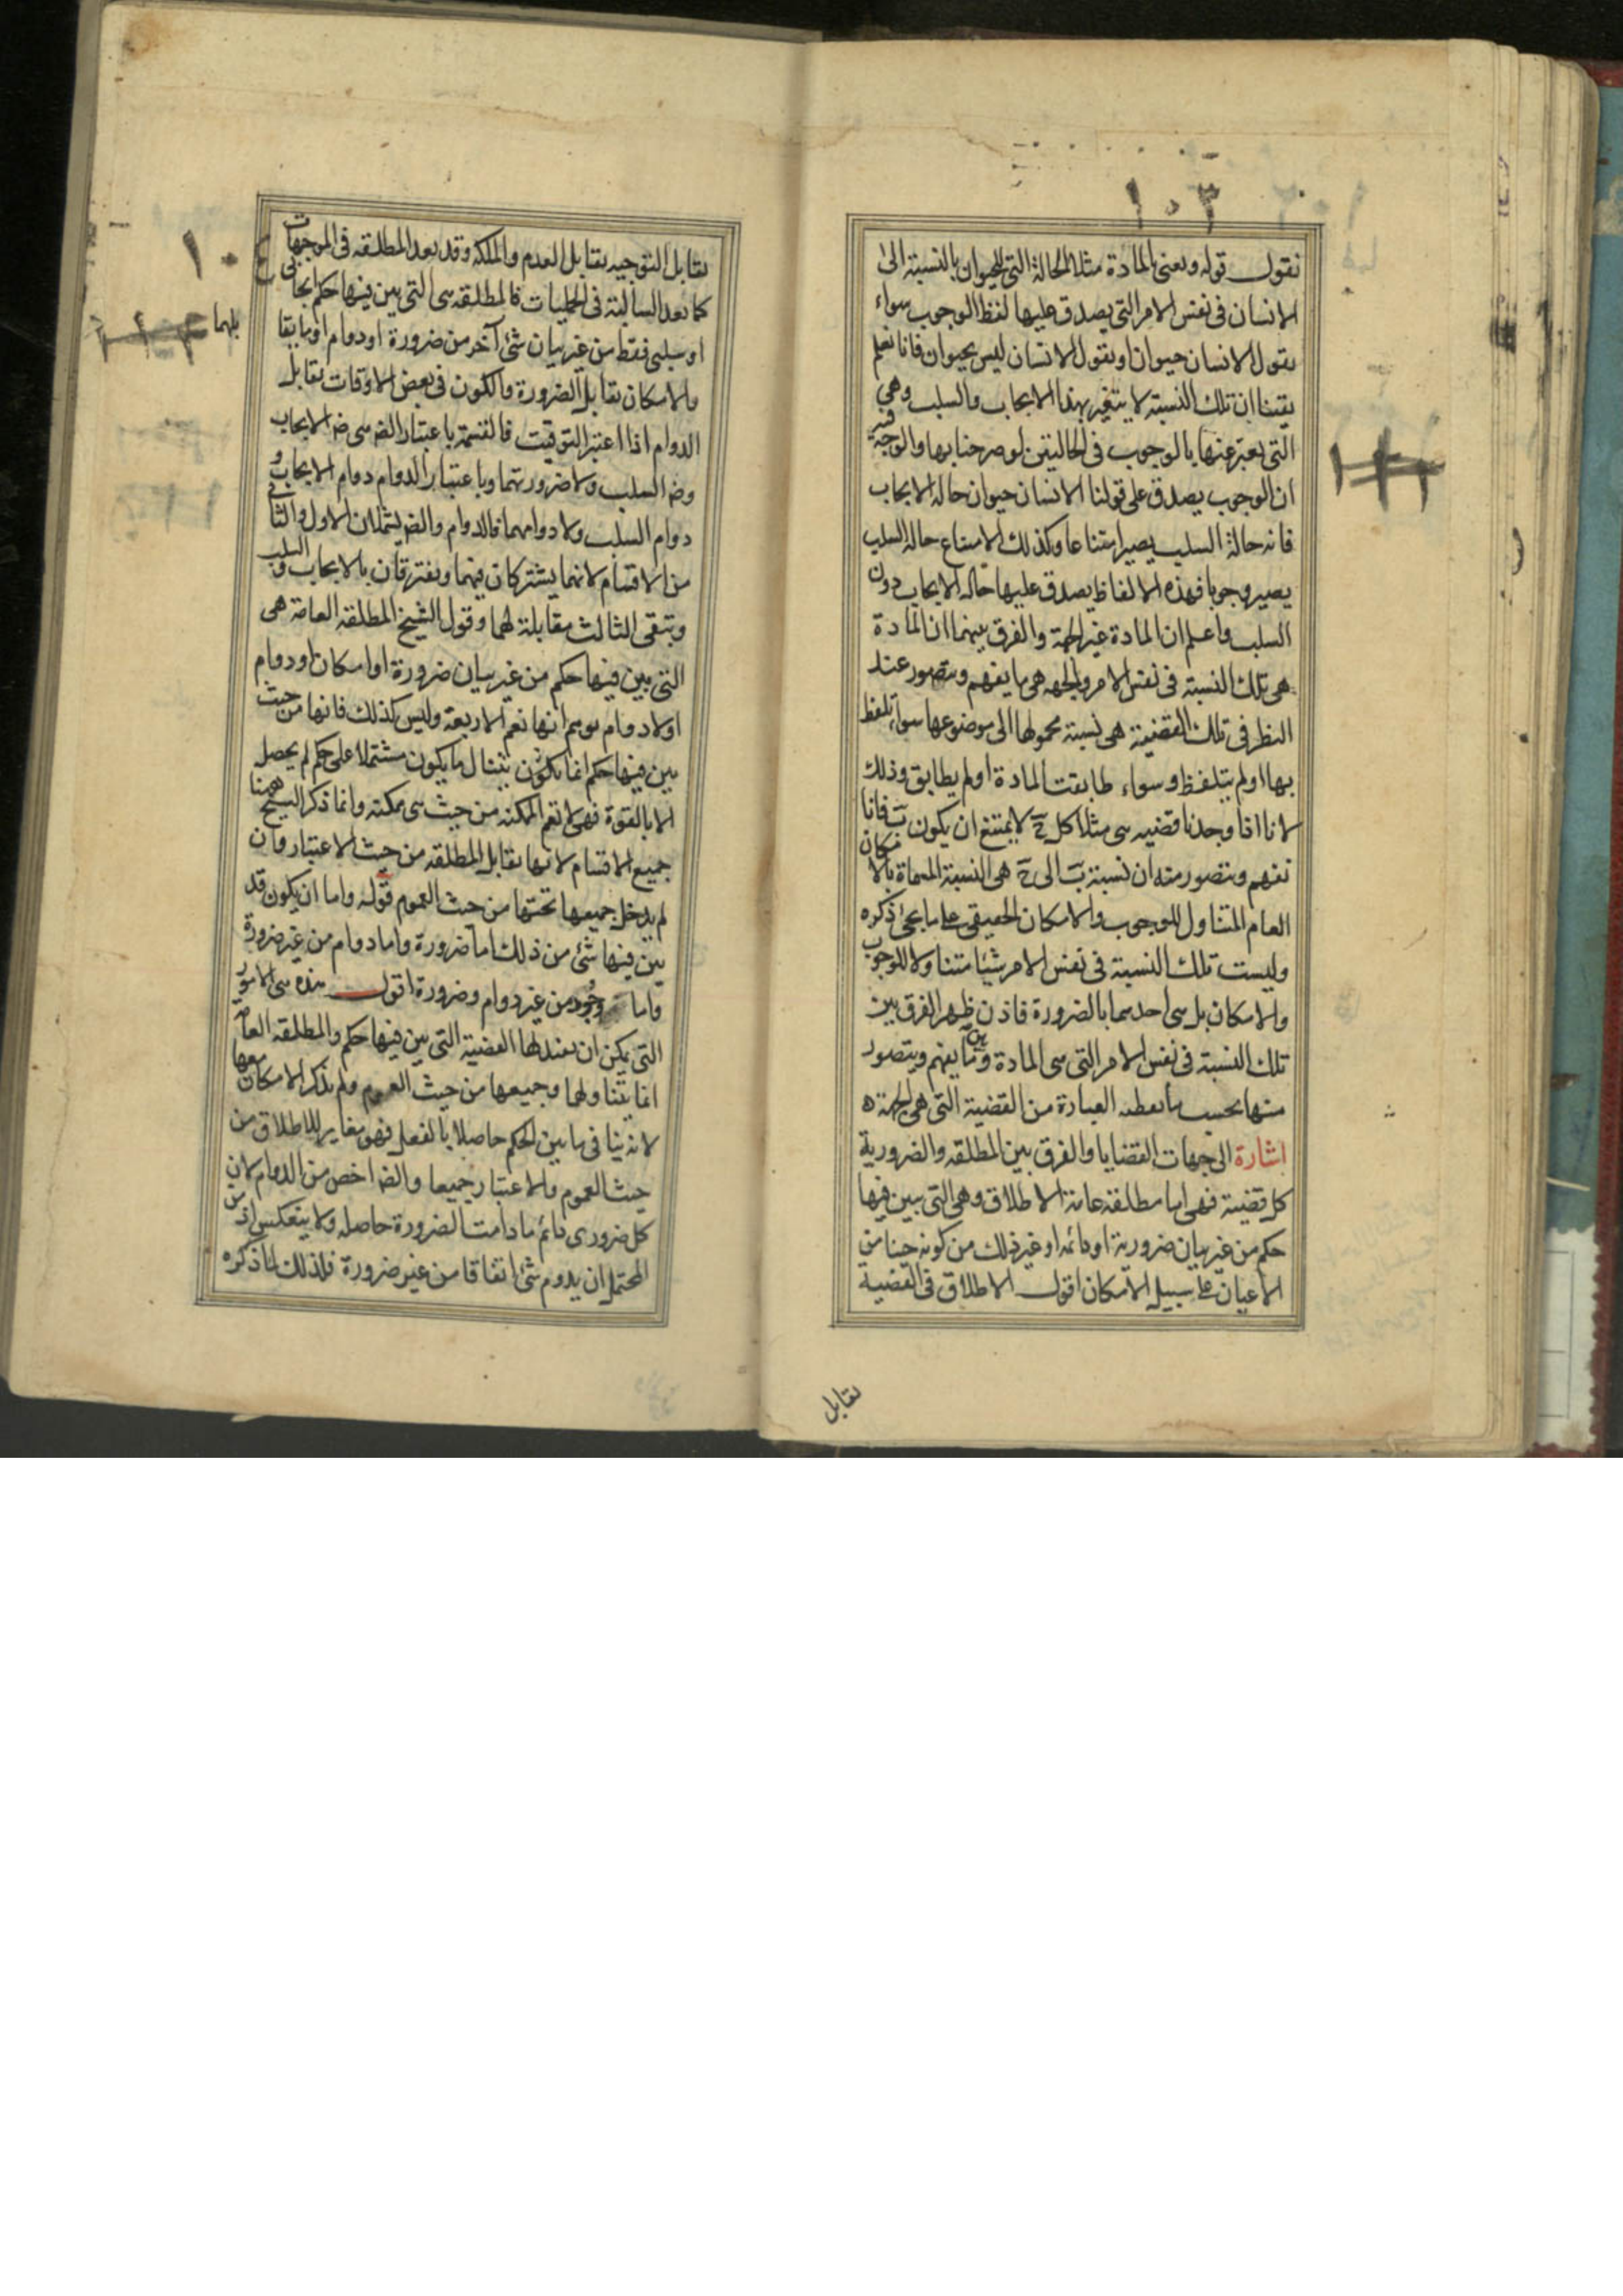 ١٠٣
نقول قوله ويعنى بالمادة مثلا الحالة التى للحيوان بالنسبة الى
الانسان فى نفس الامر التى يصدق عليها لفظ الوجوب سواء
يقول الانسان حيوان او يقول الانسان ليس بحيوان فانا نعلم
يقينا ان تلك النسبة لا يتغير بهذا الايجاب والسلب وهى
التى يعبر عنها بالوجوب فى الحالتين لو صرحنا بها والوجه فيه
ان الوجوب يصدق على قولنا الانسان حيوان حالة الايجاب
فانه حالة السلب يصير امتناعا وكذلك الامتناع حالة السلب
يصير وجوبا فهذه الالفاظ يصدق عليها حالة الايجاب دون
السلب واعلم ان المادة غير الجهة والفرق بينهما ان المادة
هى تلك النسبة فى نفس الامر والجهه هى ما يفهم ويتصور عند
النظر فى تلك القضية هى نسبة محمولها الى موضوعها سواء تلفظ
بها او لم يتلفظ وسواء طابقت المادة او لم يطابق وذلك
لانا اذا وجدنا قضيه هى مثلا كل ج لا يمتنع ان يكون ب فانا
نفهم ونتصور منه ان نسبة ب الى ج هى النسبة المسماة بالامكان
العام المتناول للوجوب والامكان الحقيقى على ما يجئ ذكره
وليست تلك النسبة فى نفس الامر شيئا متناولا للوجوب
والامكان بل هى احدهما بالضرورة فاذن ظهر الفرق بين
تلك النسبة فى نفس الامر التى هى المادة وبين ما يفهم ويتصور
منها بحسب ما تعطيه العبارة من القضية التى هى الجهة ه
اشارة الى جهات القضايا والفرق بين المطلقه والضرورية
كل قضية فهى اما مطلقه عامة الاطلاق وهى التى بين فيها
حكم من غير بيان ضرورية او دائمه او غير ذلك من كونه حينا من
الاحيان على سبيل الامكان اقول الاطلاق فى القضية
تقابل
١٠٤
تقابل التوجيه تقابل العدم والملكه وقد يعد المطلقه فى الموجهات
كما يعد السالبة فى الحمليات فالمطلقه هى التى بين فيها حكم ايجابى
او سلبى فقط من غير بيان شئ آخر من ضرورة او دوام او ما يقابلهما
والامكان تقابل الضرورة والكون فى بعض الاوقات تقابل
الدوام اذا اعتبر التوقيت فالقسمة باعتبار الضه هى ضه الايجاب
وضه السلب ولا ضرورتهما وباعتبار الدوام دوام الايجاب و
دوام السلب ولا دوامهما فالدوام والضه يشملان الاول والثانى
من الاقسام لانهما يشتركان فيهما ويفترقان بالايجاب والسلب
ويبقى الثالث مقابلة لهما وقول الشيخ المطلقه العامة هى
التى بين فيها حكم من غير بيان ضرورة او امكان او دوام
او لا دوام يوهم انها تعم الاربعة وليس كذلك فانها من حيث
بين فيها حكم انما يكون يتناول ما يكون مشتملا على حكم لم يحصل
الا بالقوة فهى لا تعم الممكنه من حيث هى ممكنه وانما ذكر الشيخ ههنا
جميع الاقسام لانها تقابل المطلقه من حيث الاعتبار وان
لم يدخل جميعها تحتها من حيث العموم قوله واما ان يكون قد
بين فيها شئ من ذلك اما ضرورة واما دوام من غير ضرورة
واما وجود من غير دوام وضرورة اقول هذه هى الامور
التى يمكن ان تقيد بها القضية التى بين فيها حكم والمطلقه العامه
انما تتناولها وجميعها من حيث العموم ولم يذكر الامكان معها
لانه ينافى ما بين الحكم حاصلا بالفعل فهو مغاير للاطلاق من
حيث العموم والاعتبار جميعا والضه اخص من الدوام لان
كل ضرورى دائم ما دامت الضرورة حاصله ولا ينعكس اذ من
المحتمل ان يدوم شئ اتفاقا من غير ضرورة فلذلك لما ذكره